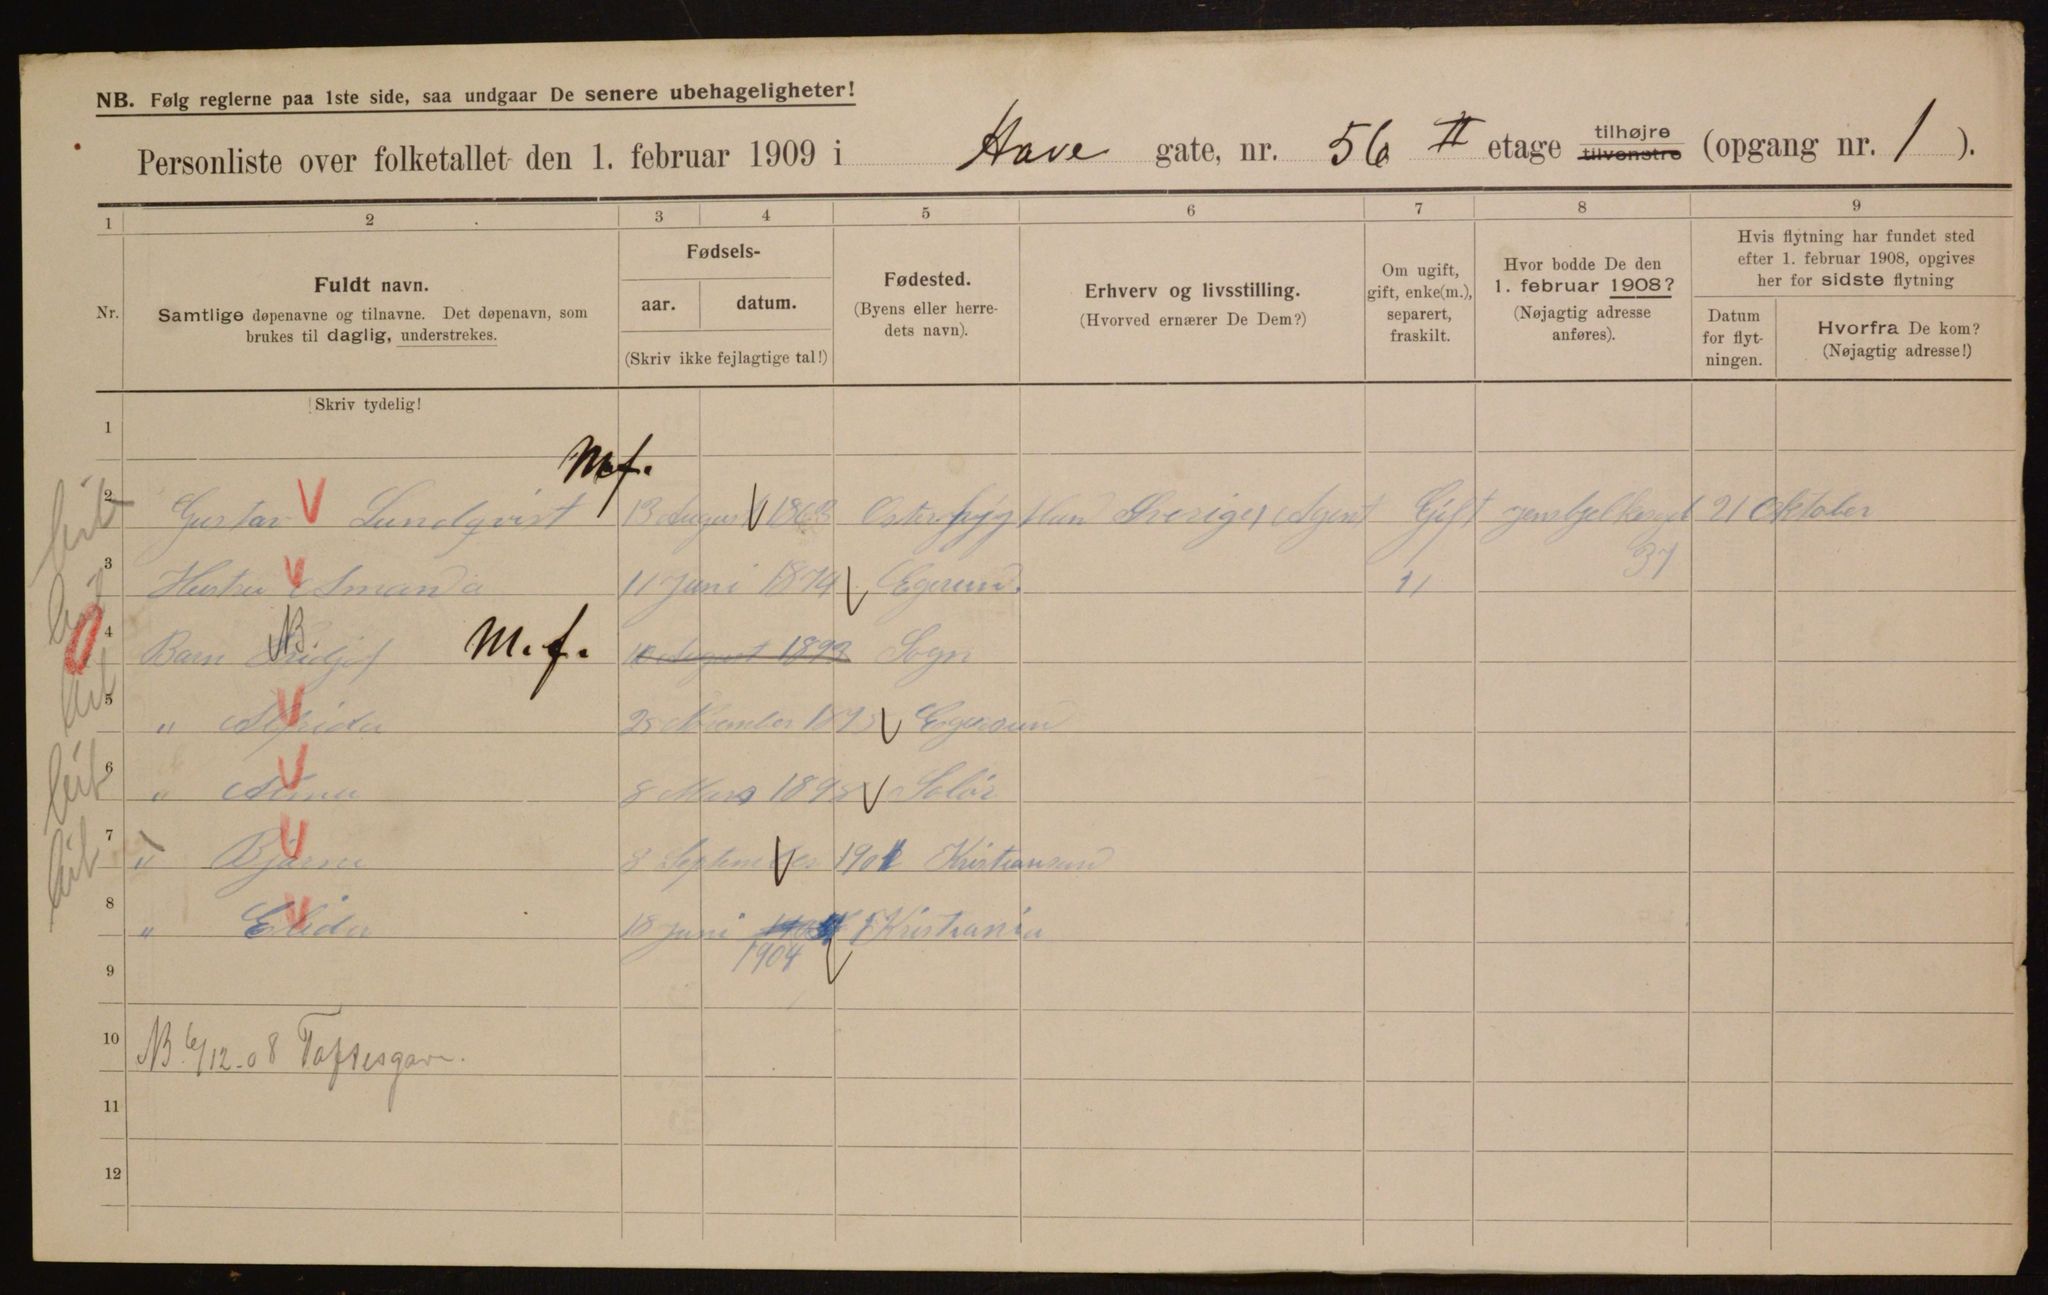 NB. Følg reglerne paa 1ste side, saa undgaar De senere ubehageligheter!
Personliste over folketallet den 1. februar 1909 i Have gate, nr. 56 II etage tilhøjre tilvenstre (opgang nr. 1 ).
1 2 3 4 5 6 7 8 9
Nr.
Fuldt navn.
Samtlige døpenavne og tilnavne. Det døpenavn, som
brukes til daglig, understrekes.
Fødsels-
aar. datum.
(Skriv ikke fejlagtige tal!)
Fødested.
(Byens eller herre-
dets navn).
Erhverv og livsstilling.
(Hvorved ernærer De Dem?)
Om ugift,
gift, enke(m.),
separert,
fraskilt.
Hvor bodde De den
1. februar 1908?
(Nøjagtig adresse
anføres).
Hvis flytning har fundet sted
efter 1. februar 1908, opgives
her for sidste flytning
Datum
for flyt-
ningen.
Hvorfra De kom?
(Nøjagtig adresse!)
Skriv tydelig!
1
M.f.
2 Gustav Lundqvist 13 August 1863 Agent Gift 21 Oktober
37
3 Hustru Amanda 11 Juni 1874 Egersund "
4 Barn NB M.f. August 1893 Sogn
5 " November Egersund
6 " Anna 8 Mars 1898 Solør
7 " Bjarne 8 September 1901 Kristiansund
8 " Elida 18 Juni Kristiania
1904
9
10 NB. 6/12-08 Toftesgave.
11
12